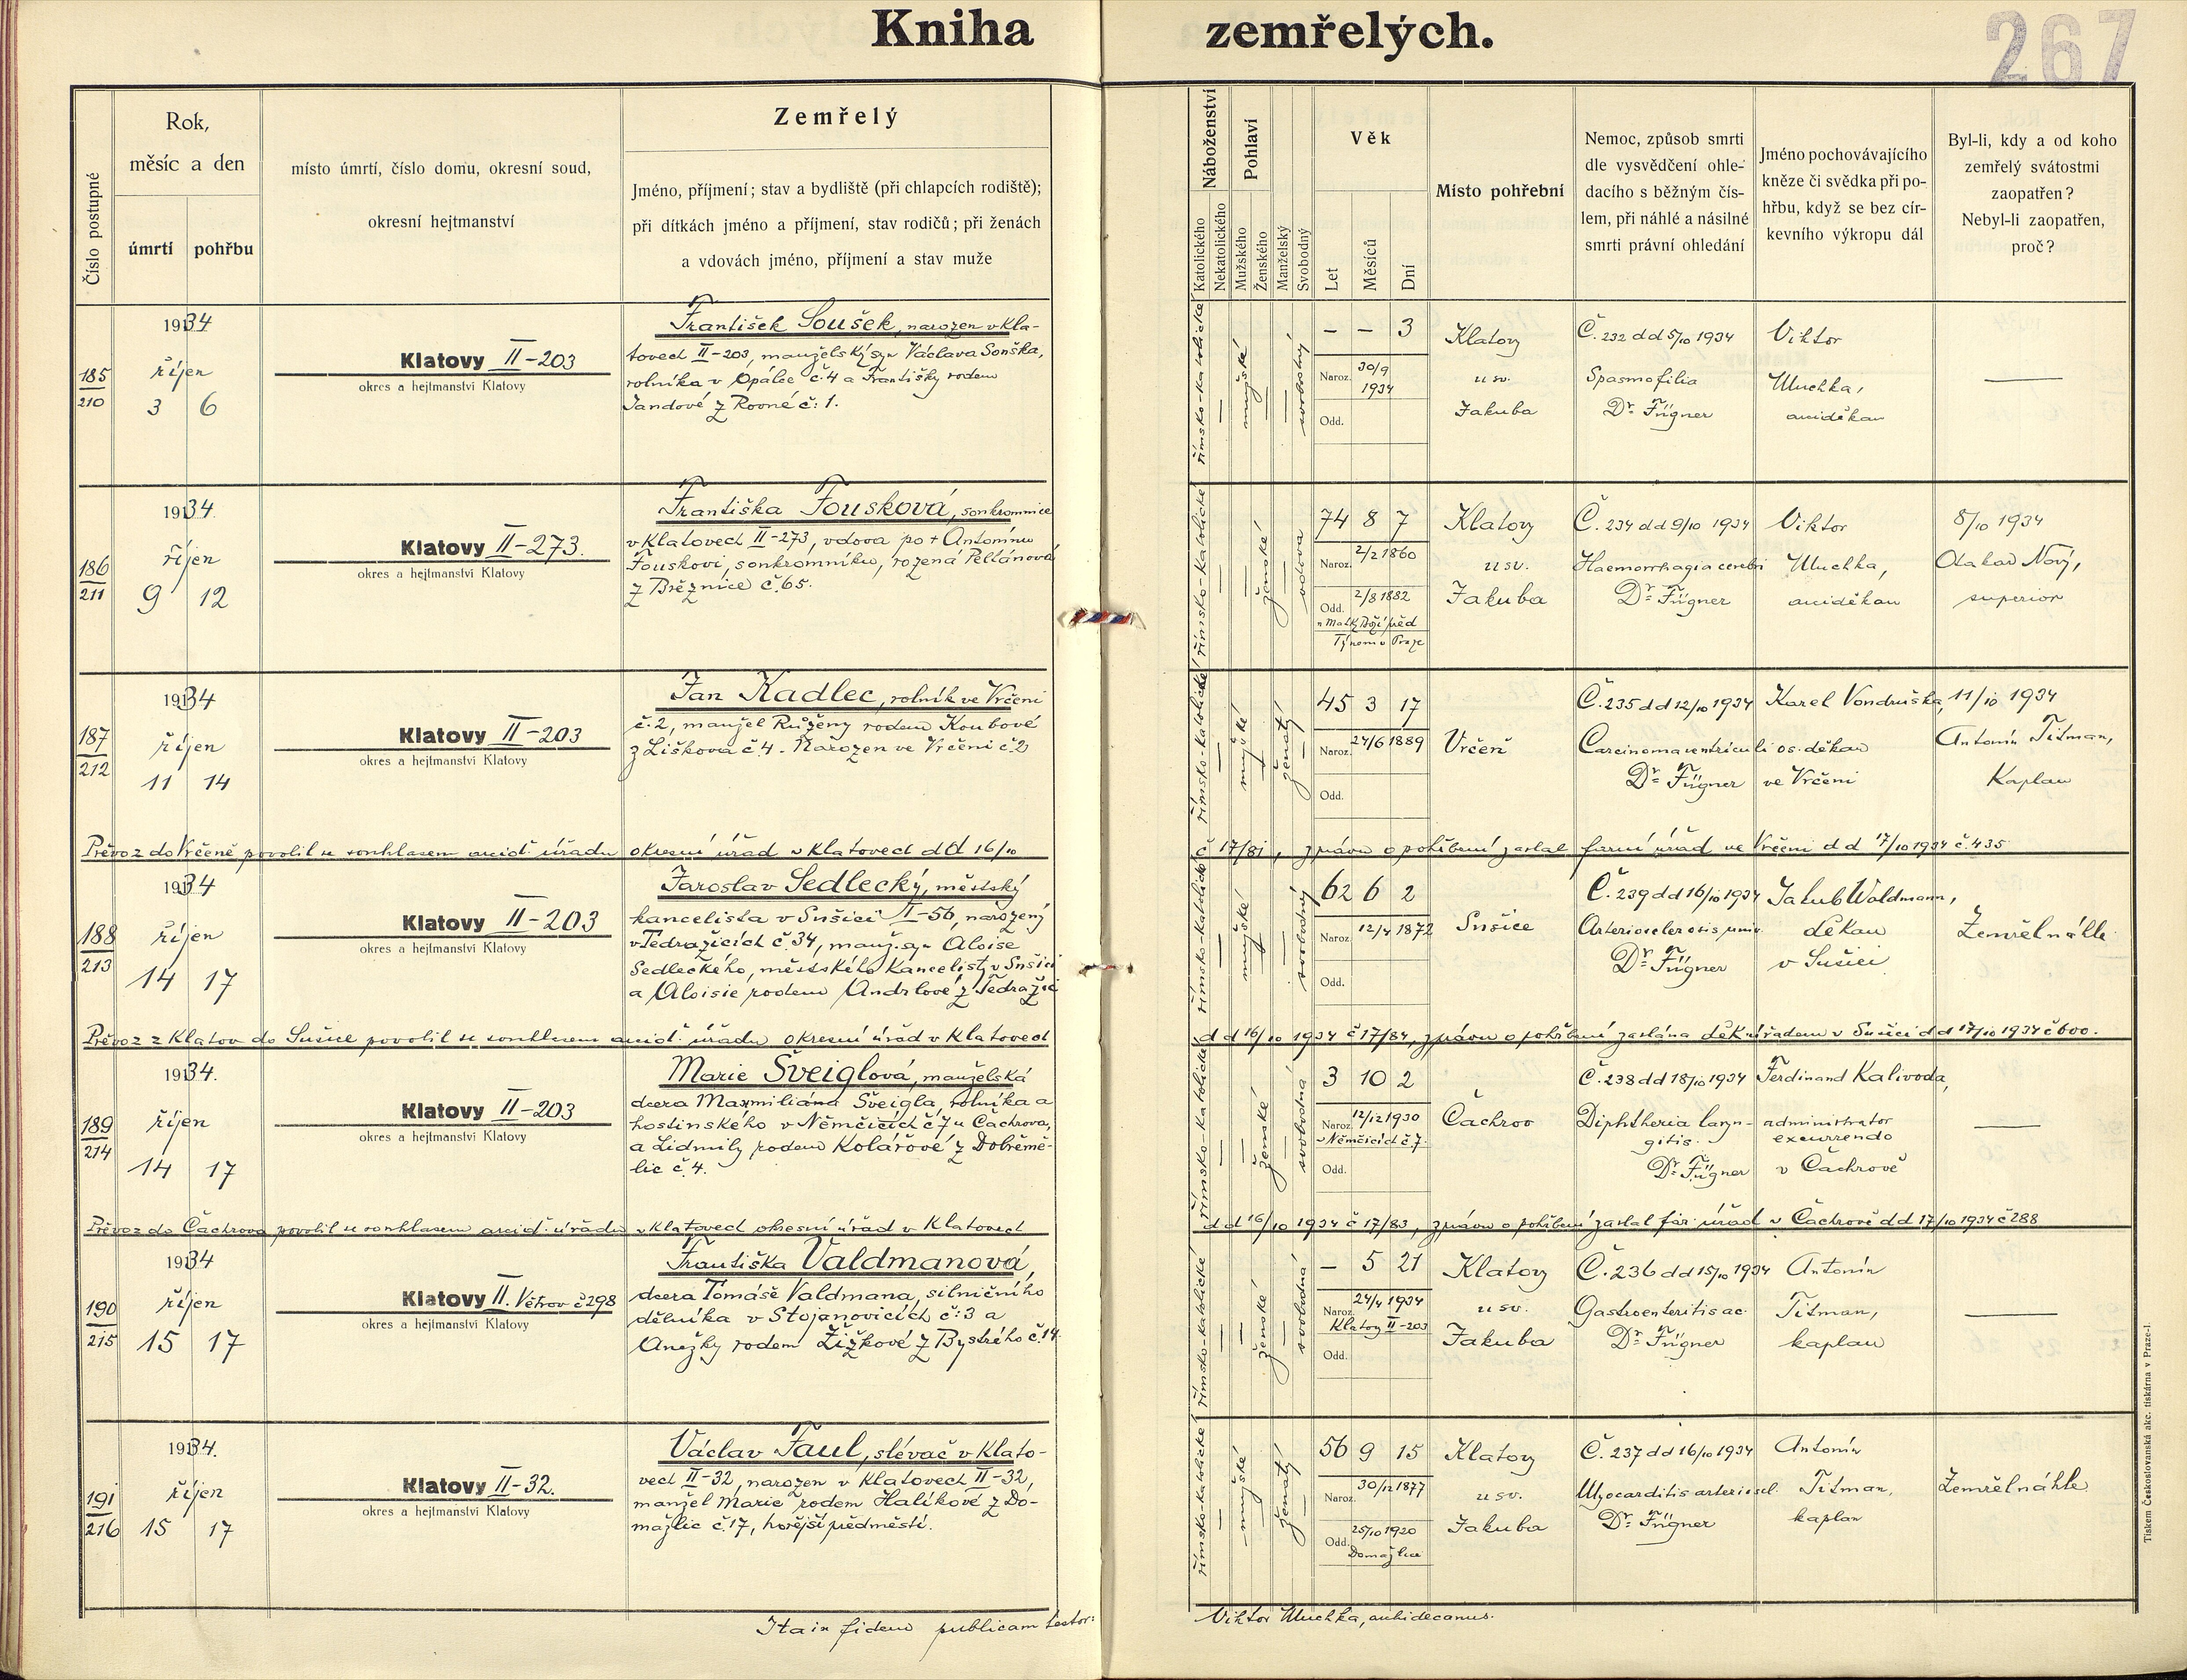 Kniha zemřelých.
267
Číslo postupné
Rok,
měsíc a den
úmrtí
pohřbu
místo úmrtí, číslo domu, okresní soud,
okresní hejtmanství
Zemřelý
Jméno, příjmení; stav a bydliště (při chlapcích rodiště);
při dítkách jméno a příjmení, stav rodičů; při ženách
a vdovách jméno, příjmení a stav muže
Náboženství
Katolického
Nekatolického
Pohlaví
Mužského
Ženského
Manželský
Svobodný
Věk
Let
Měsíců
Dní
Místo pohřební
Nemoc, způsob smrti
dle vysvědčení ohle-
dacího s běžným čís-
lem, při náhlé a násilné
smrti právní ohledání
Jméno pochovávajícího
kněze či svědka při po-
hřbu, když se bez cír-
kevního výkropu dál
Byl-li, kdy a od koho
zemřelý svátostmi
zaopatřen?
Nebyl-li zaopatřen,
proč?
185
210
1934
říjen
3 6
Klatovy II-203
okres a hejtmanství Klatovy
František Soušek, narozen v Kla-
tovech II-203, manželský syn Václava Souška,
rolníka v Opálce č. 4 a Františky rodem
Jandové z Rovné č: 1.
římsko-katolické
mužské
svobodný
– – 3
Naroz. 30/9
1934
Odd.
Klatovy
u sv.
Jakuba
Č. 232 dd 5/10 1934
Spasmofilia
Dr. Fügner
Viktor
Muchka,
arciděkan
186
211
1934
říjen
9 12
Klatovy II-273.
okres a hejtmanství Klatovy
Františka Fousková, soukromnice
v Klatovech II-273, vdova po + Antonínu
Fouskovi, soukromníku, rozená Peltánová
z Březnice č. 65.
římsko-katolické
ženské
vdova
74 8 7
Naroz. 2/2 1860
Odd. 2/8 1882
u Matky Boží před
Týnem v Praze
Klatovy
u sv.
Jakuba
Č. 234 dd 9/10 1934
Haemorrhagia cerebri
Dr. Fügner
Viktor
Muchka,
arciděkan
8/10 1934
Otakar Nový,
superior
187
212
1934
říjen
11 14
Klatovy II-203
okres a hejtmanství Klatovy
Jan Kadlec, rolník ve Vrčeni
č. 2, manžel Růženy rodem Koubové
z Liškova č. 4. Narozen ve Vrčeni č. 2
římsko-katolické
mužské
ženatý
45 3 17
Naroz. 24/6 1889
Odd.
Vrčeň
Č. 235 dd 12/10 1934
Carcinoma ventriculi
Dr. Fügner
Karel Vondruška,
os. děkan
ve Vrčeni
11/10 1934
Antonín Titman,
Kaplan
Převoz do Vrčeně povolil se souhlasem arcid. úřadu okresní úřad v Klatovech dd 16/10 č 17/81, zprávu o pohřbení zaslal farní úřad ve Vrčeni dd 17/10 1934 č. 435
188
213
1934
říjen
14 17
Klatovy II-203
okres a hejtmanství Klatovy
Jaroslav Sedlecký, městský
kancelista v Sušici II-56, narozený
v Tedražicích č. 34, manž. syn Aloise
Sedleckého, městského kancelisty v Sušici
a Aloisie rodem Andrlové z Tedražic
římsko-katolické
mužské
svobodný
62 6 2
Naroz. 12/4 1872
Odd.
Sušice
Č. 239 dd 16/10 1934
Arteriosclerosis univ.
Dr. Fügner
Jakub Waldmann,
děkan
v Sušici
Zemřel náhle
Převoz z Klatov do Sušice povolil se souhlasem arcid. úřadu okresní úřad v Klatovech dd 16/10 1934 č 17/84, zprávu o pohřbení zaslána děk. úřadem v Sušici dd 17/10 1934 č 600.
189
214
1934.
říjen
14 17
Klatovy II-203
okres a hejtmanství Klatovy
Marie Šveiglová, manželská
dcera Maxmiliána Šveigla, rolníka a
hostinského v Němčicích č 7 u Čachrova,
a Lidmily rodem Kolářové z Dobřemě-
lic č. 4.
římsko-katolické
ženské
svobodná
3 10 2
Naroz. 12/12 1930
v Němčicích č. 7.
Odd.
Čachrov
Č. 238 dd 18/10 1934
Diphtheria laryn-
gitis.
Dr. Fügner
Ferdinand Kalivoda,
administrator
excurrendo
v Čachrově
Převoz do Čachrova povolil se souhlasem arcid. úřadu v Klatovech okresní úřad v Klatovech dd 16/10 1934 č 17/83, zprávu o pohřbení zaslal far. úřad v Čachrově dd 17/10 1934 č 288
190
215
1934
říjen
15 17
Klatovy II. Větrov č 298
okres a hejtmanství Klatovy
Františka Valdmanová,
dcera Tomáše Valdmana, silničního
dělníka v Stojanovicích č: 3 a
Anežky rodem Žižkové z Bystrého č. 14.
římsko-katolické
ženské
svobodná
– 5 21
Naroz. 24/4 1934
Klatovy II-203
Odd.
Klatovy
u sv.
Jakuba
Č. 236 dd 15/10 1934
Gastroenteritis ac.
Dr. Fügner
Antonín
Titman,
kaplan
191
216
1934.
říjen
15 17
Klatovy II-32.
okres a hejtmanství Klatovy
Václav Faul, slévač v Klato-
vech II-32, narozen v Klatovech II-32,
manžel Marie rodem Halíkové z Do-
mažlic č. 17, hořejší předměstí.
římsko-katolické
mužské
ženatý
56 9 15
Naroz. 30/12 1877
Odd. 25/10 1920
Domažlice
Klatovy
u sv.
Jakuba
Č. 237 dd 16/10 1934
Myocarditis arterioscl.
Dr. Fügner
Antonín
Titman,
kaplan
Zemřel náhle
Ita in fidem publicam testor: Viktor Muchka, archidecanus.
Tiskem Českoslovanská akc. tiskárna v Praze-I.